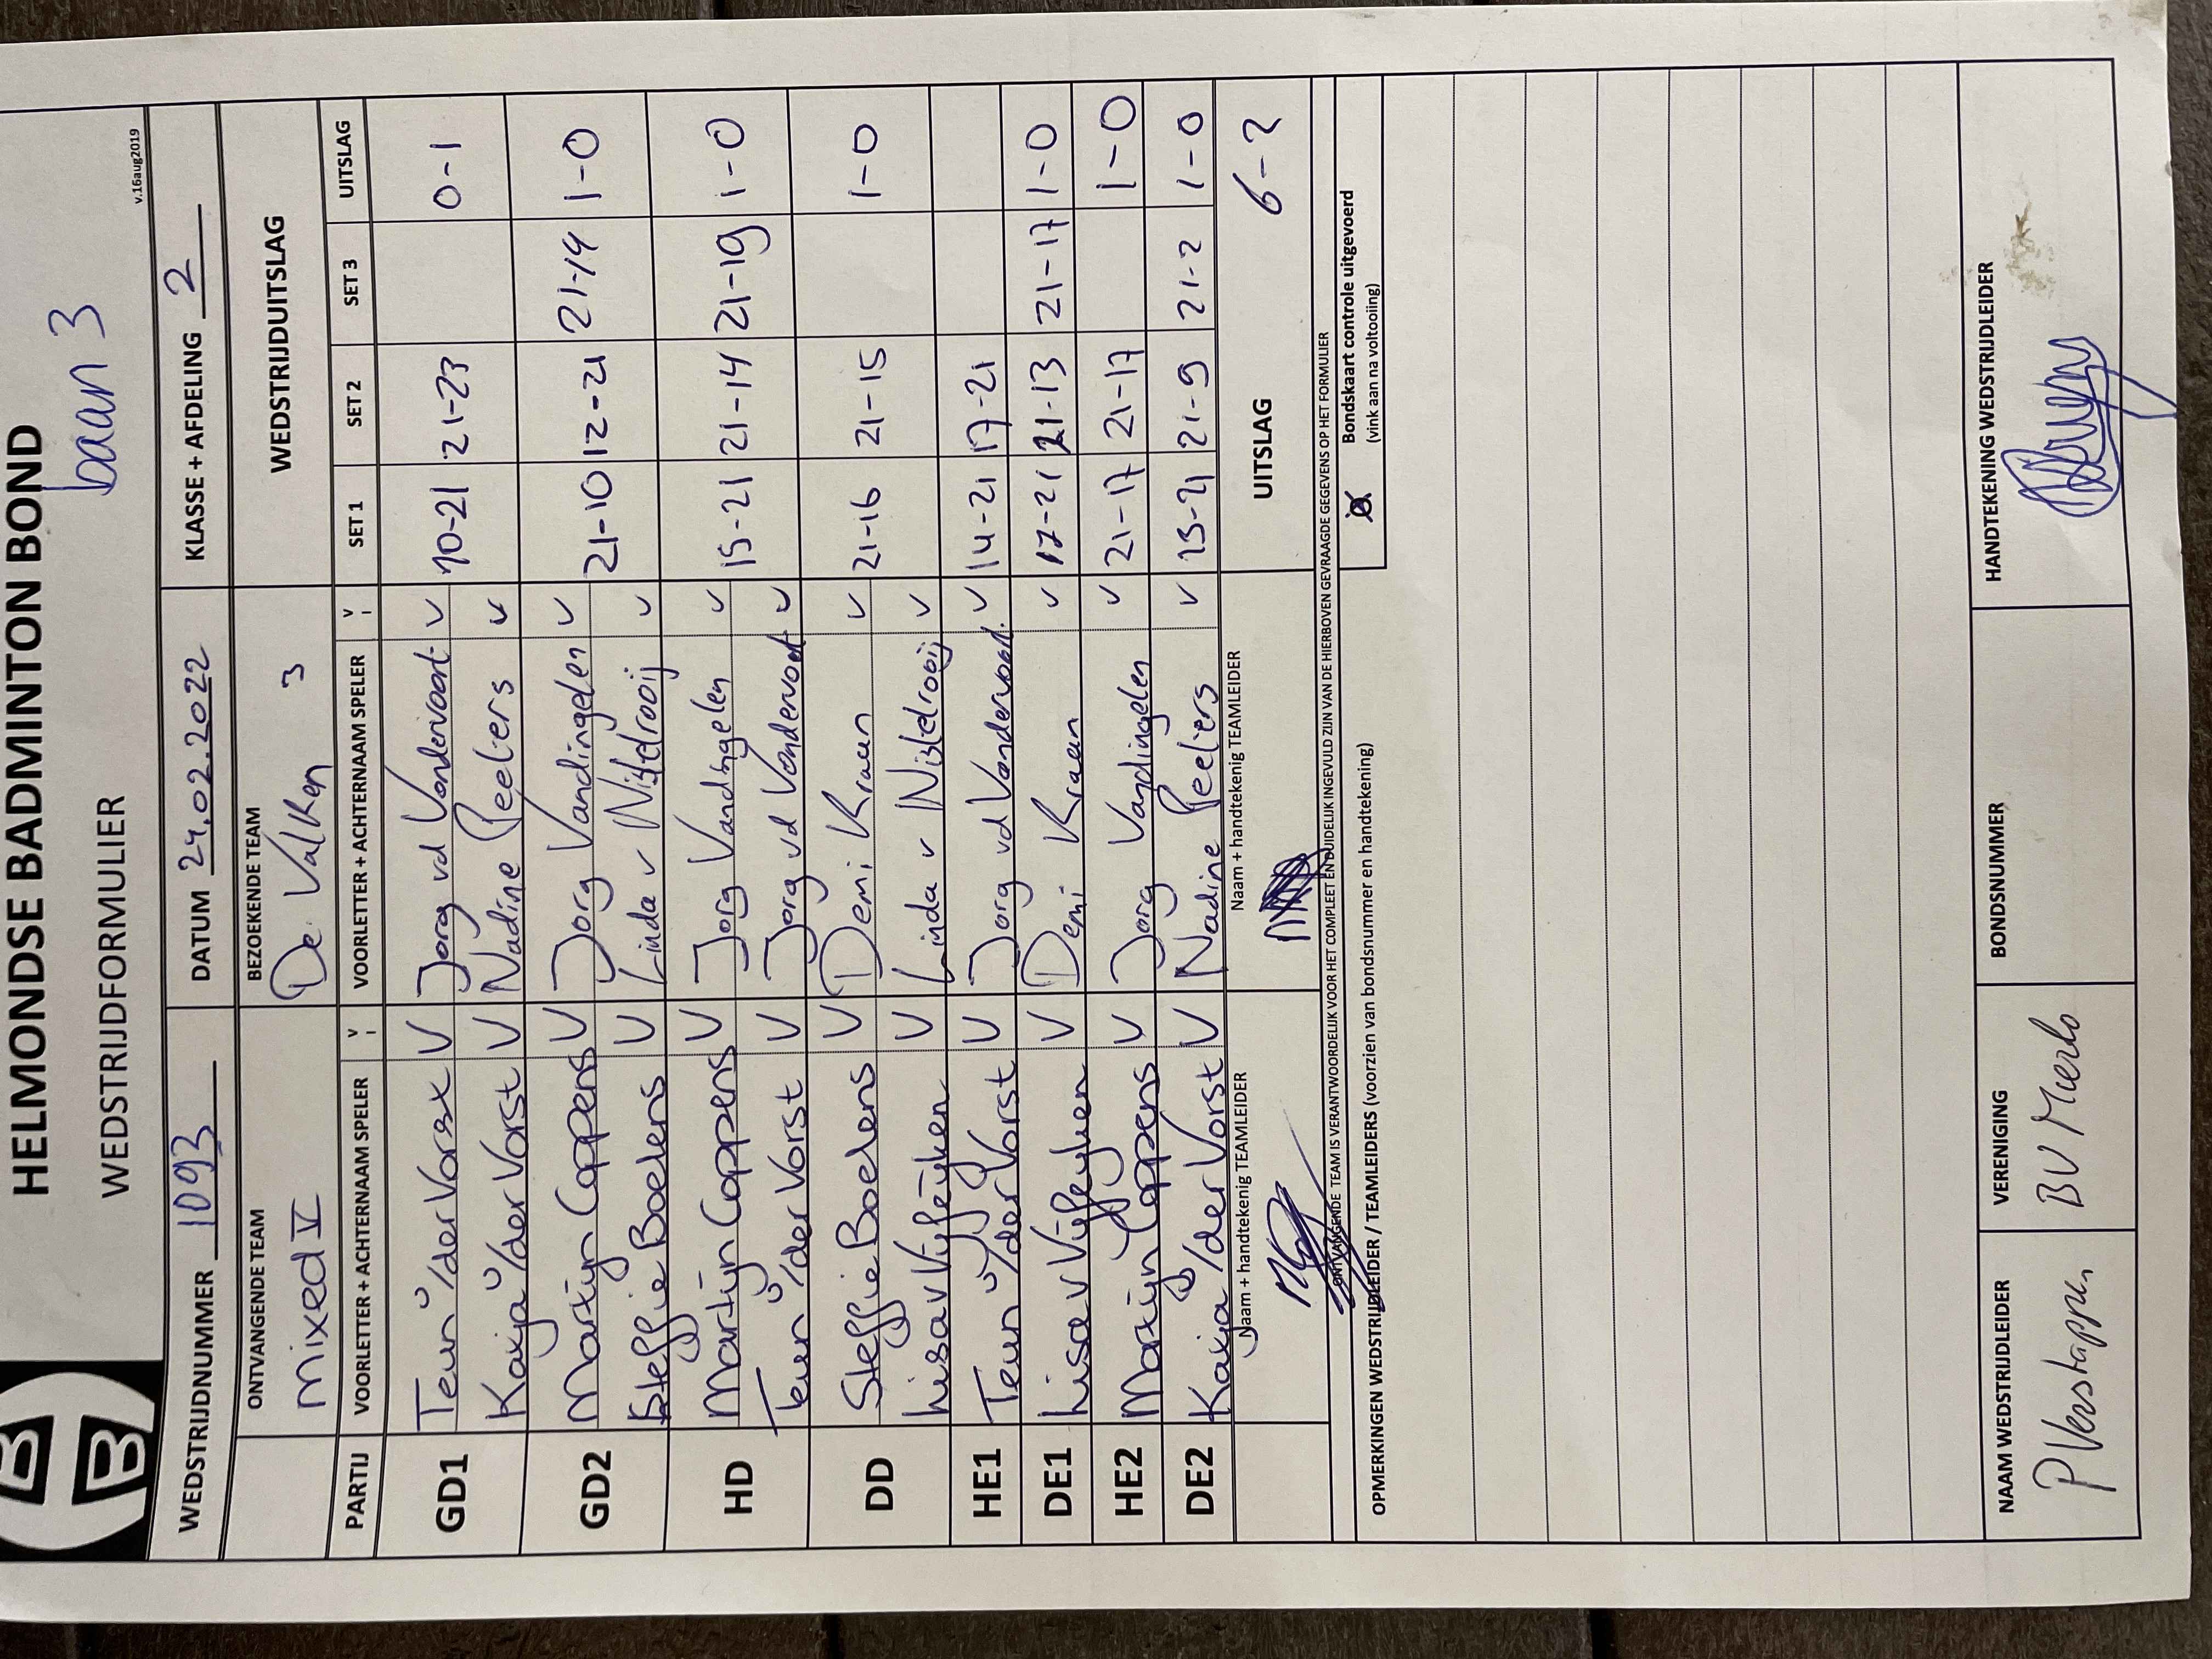 HELMONDSE BADMINTON BOND
WEDSTRIJDFORMULIER
baan 3
v.16aug2019
WEDSTRIJDNUMMER 1093 DATUM 24.02.2022 KLASSE + AFDELING 2
ONTVANGENDE TEAM BEZOEKENDE TEAM WEDSTRIJDUITSLAG
mixed V De Valken 3
PARTIJ VOORLETTER + ACHTERNAAM SPELER V VOORLETTER + ACHTERNAAM SPELER V SET 1 SET 2 SET 3 UITSLAG
GD1 Teun v/der Vorst V Jorg vd Vondervoort v 10-21 21-23 0-1
Katja v/der Vorst V Nadine Peeters v
GD2 Martijn Coppens V Jorg Vandingelen v 21-10 12-21 21-19 1-0
Steffie Boelens V Linda v Nistelrooij v
HD Martijn Coppens V Jorg Vandingelen v 15-21 21-14 21-19 1-0
Teun v/der Vorst V Jorg vd Vondervoort v
DD Steffie Boelens V Demi Kraan v 21-16 21-15 1-0
Lisa v Vijfeijken V Linda v Nistelrooij v
HE1 Teun v/der Vorst V Jorg vd Vondervoort v 14-21 17-21
DE1 Lisa v Vijfeijken V Demi Kraan v 17-21 21-13 21-17 1-0
HE2 Martijn Coppens V Jorg Vandingelen v 21-17 21-17 1-0
DE2 Katja v/der Vorst V Nadine Peeters v 13-21 21-9 21-2 1-0
Naam + handtekenig TEAMLEIDER Naam + handtekenig TEAMLEIDER UITSLAG 6-2
ONTVANGENDE TEAM IS VERANTWOORDELIJK VOOR HET COMPLEET EN DUIDELIJK INGEVULD ZIJN VAN DE HIERBOVEN GEVRAAGDE GEGEVENS OP HET FORMULIER
Bondskaart controle uitgevoerd
(vink aan na voltooiing)
OPMERKINGEN WEDSTRIJDLEIDER / TEAMLEIDERS (voorzien van bondsnummer en handtekening)
NAAM WEDSTRIJDLEIDER VERENIGING BONDSNUMMER HANDTEKENING WEDSTRIJDLEIDER
P Verstappen BV Mierlo